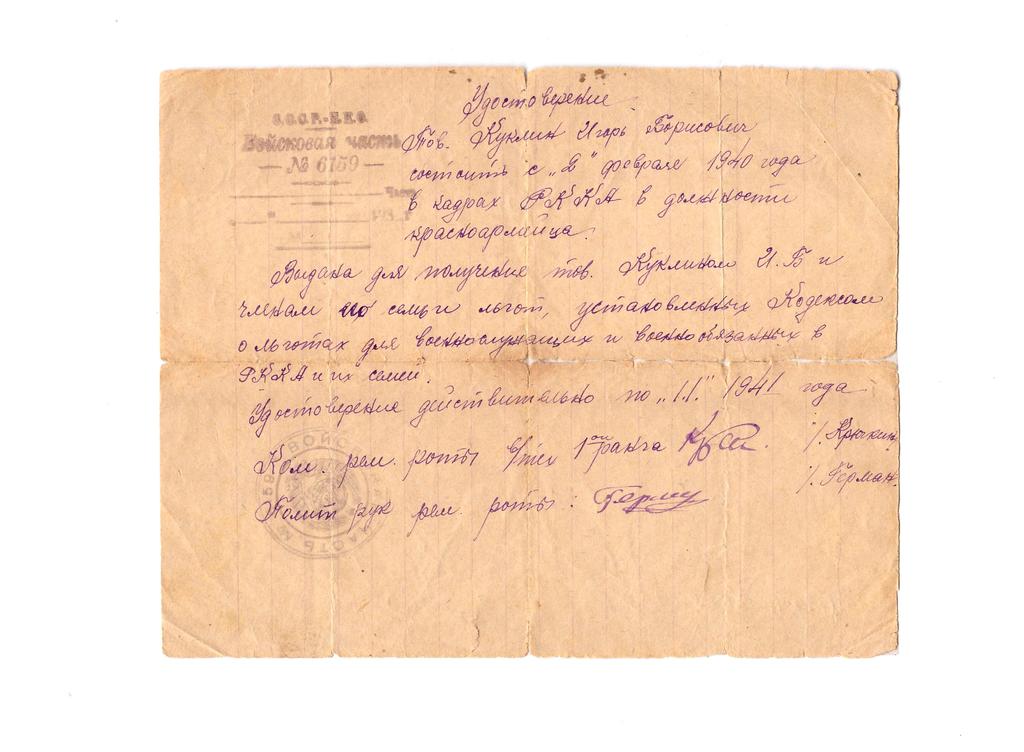 С.С.С.Р.-Н.К.О.
Войсковая часть
— № 6159 —
Удостоверение
Тов. Куклин Игорь Борисович
состоить с „2" февраля 1940 года
в кадрах РККА в должности
красноармейца.
Выдана для получение тов. Куклином И.Б и
членам его семьи льгот, установленных Кодексом
о льготах для военнослужащих и военнообязанных в
РККА и их семей.
Удостоверение действительно по „1.I." 1941 года
Ком. рем. роты в/тех 1ой ранга /. Крючкин.
Полит рук рем. роты: /. Герман.
ВОЙСКОВАЯ ЧАСТЬ №